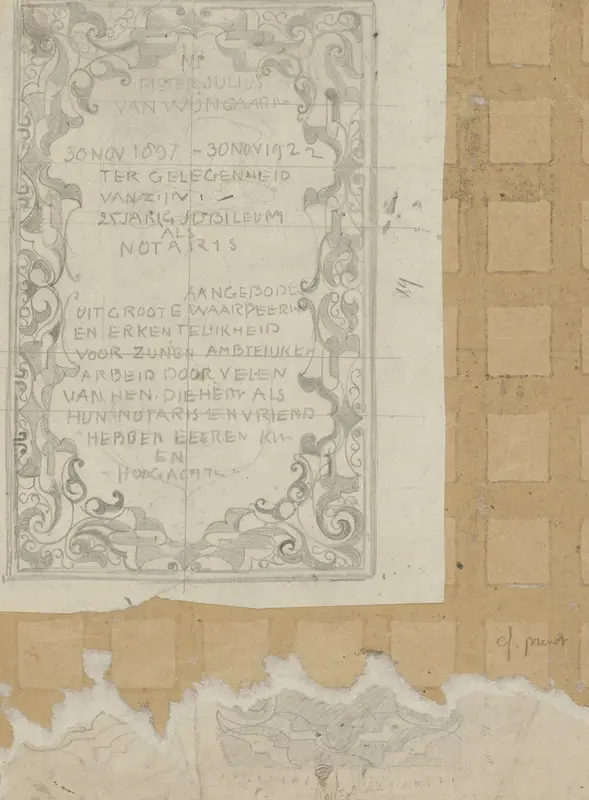 Mr
PIETER JULIUS
VAN WIJNGAARD
30 NOV 1897 - 30 NOV 1922
TER GELEGENHEID
VAN ZIJN
25 JARIG JUBILEUM
ALS
NOTARIS
AANGEBODE
UIT GROOTE WAARDEERIN
EN ERKENTELIJKHEID
VOOR ZIJNEN AMBTELIJKEN
ARBEID DOOR VELEN
VAN HEN. DIE HEM ALS
HUN NOTARIS EN VRIEND
HEBBEN LEEREN
EN